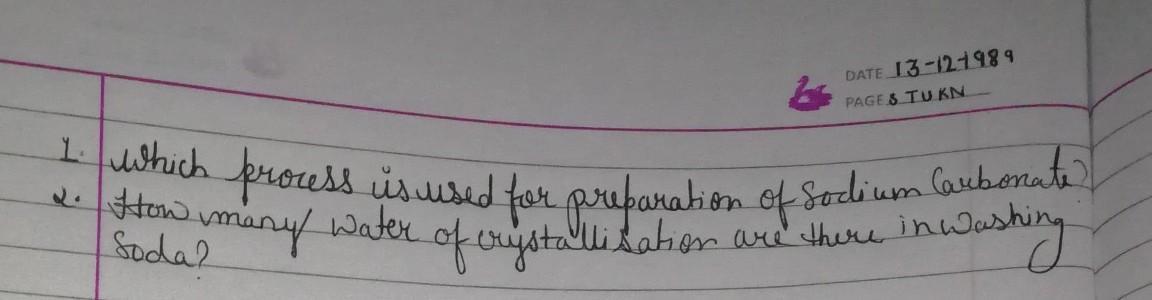 DATE 13-12-1989
PAGES TUKN
1. Which process is used for preparation of Sodium Carbonate?
2. How many Water of crystallisation are there in Washing
Soda?